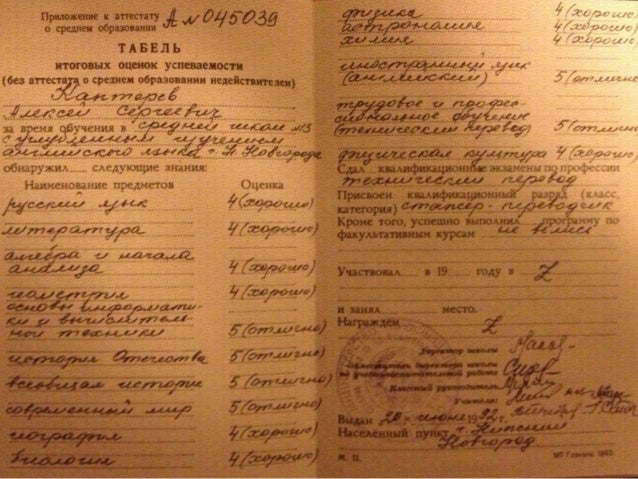 Приложение к аттестату
о среднем образовании А № 045039
ТАБЕЛЬ
итоговых оценок успеваемости
(без аттестата о среднем образовании недействителен)
Каптерев
Алексей Сергеевич
за время обучения в средней школе №13
с углубленным изучением
английского языка г. Н. Новгорода
обнаружил..... следующие знания:
Наименование предметов Оценка
русский язык 4 (хорошо)
литература 4 (хорошо)
алгебра и начала
анализа 4 (хорошо)
геометрия 4 (хорошо)
основы информати-
ки и вычислитель-
ной техники 5 (отлично)
история Отечества 5 (отлично)
всеобщая история 5 (отлично)
современный мир 5 (отлично)
география 4 (хорошо)
биология 4 (хорошо)
физика 4 (хорошо)
астрономия 4 (хорошо)
химия 4 (хорошо)
иностранный язык
(английский) 5 (отлично)
трудовое и профес-
сиональное обучение
(технический перевод) 5 (отлично)
физическая культура 4 (хорошо)
Сдал квалификационные экзамены по профессии
технический перевод
Присвоен квалификационный разряд (класс,
категория) переводчик
Кроме того, успешно выполнил программу по
факультативным курсам не велись
Участвовал в 19 году в Z
и занял место.
Награжден Z
Директор школы
Заместитель директора школы
по учебно-воспитательной работе
Классный руководитель
Учителя:
Выдан 20 июня 1992 г.
Населенный пункт г. Нижний
Новгород
М. П. МТ Гознака. 1992.